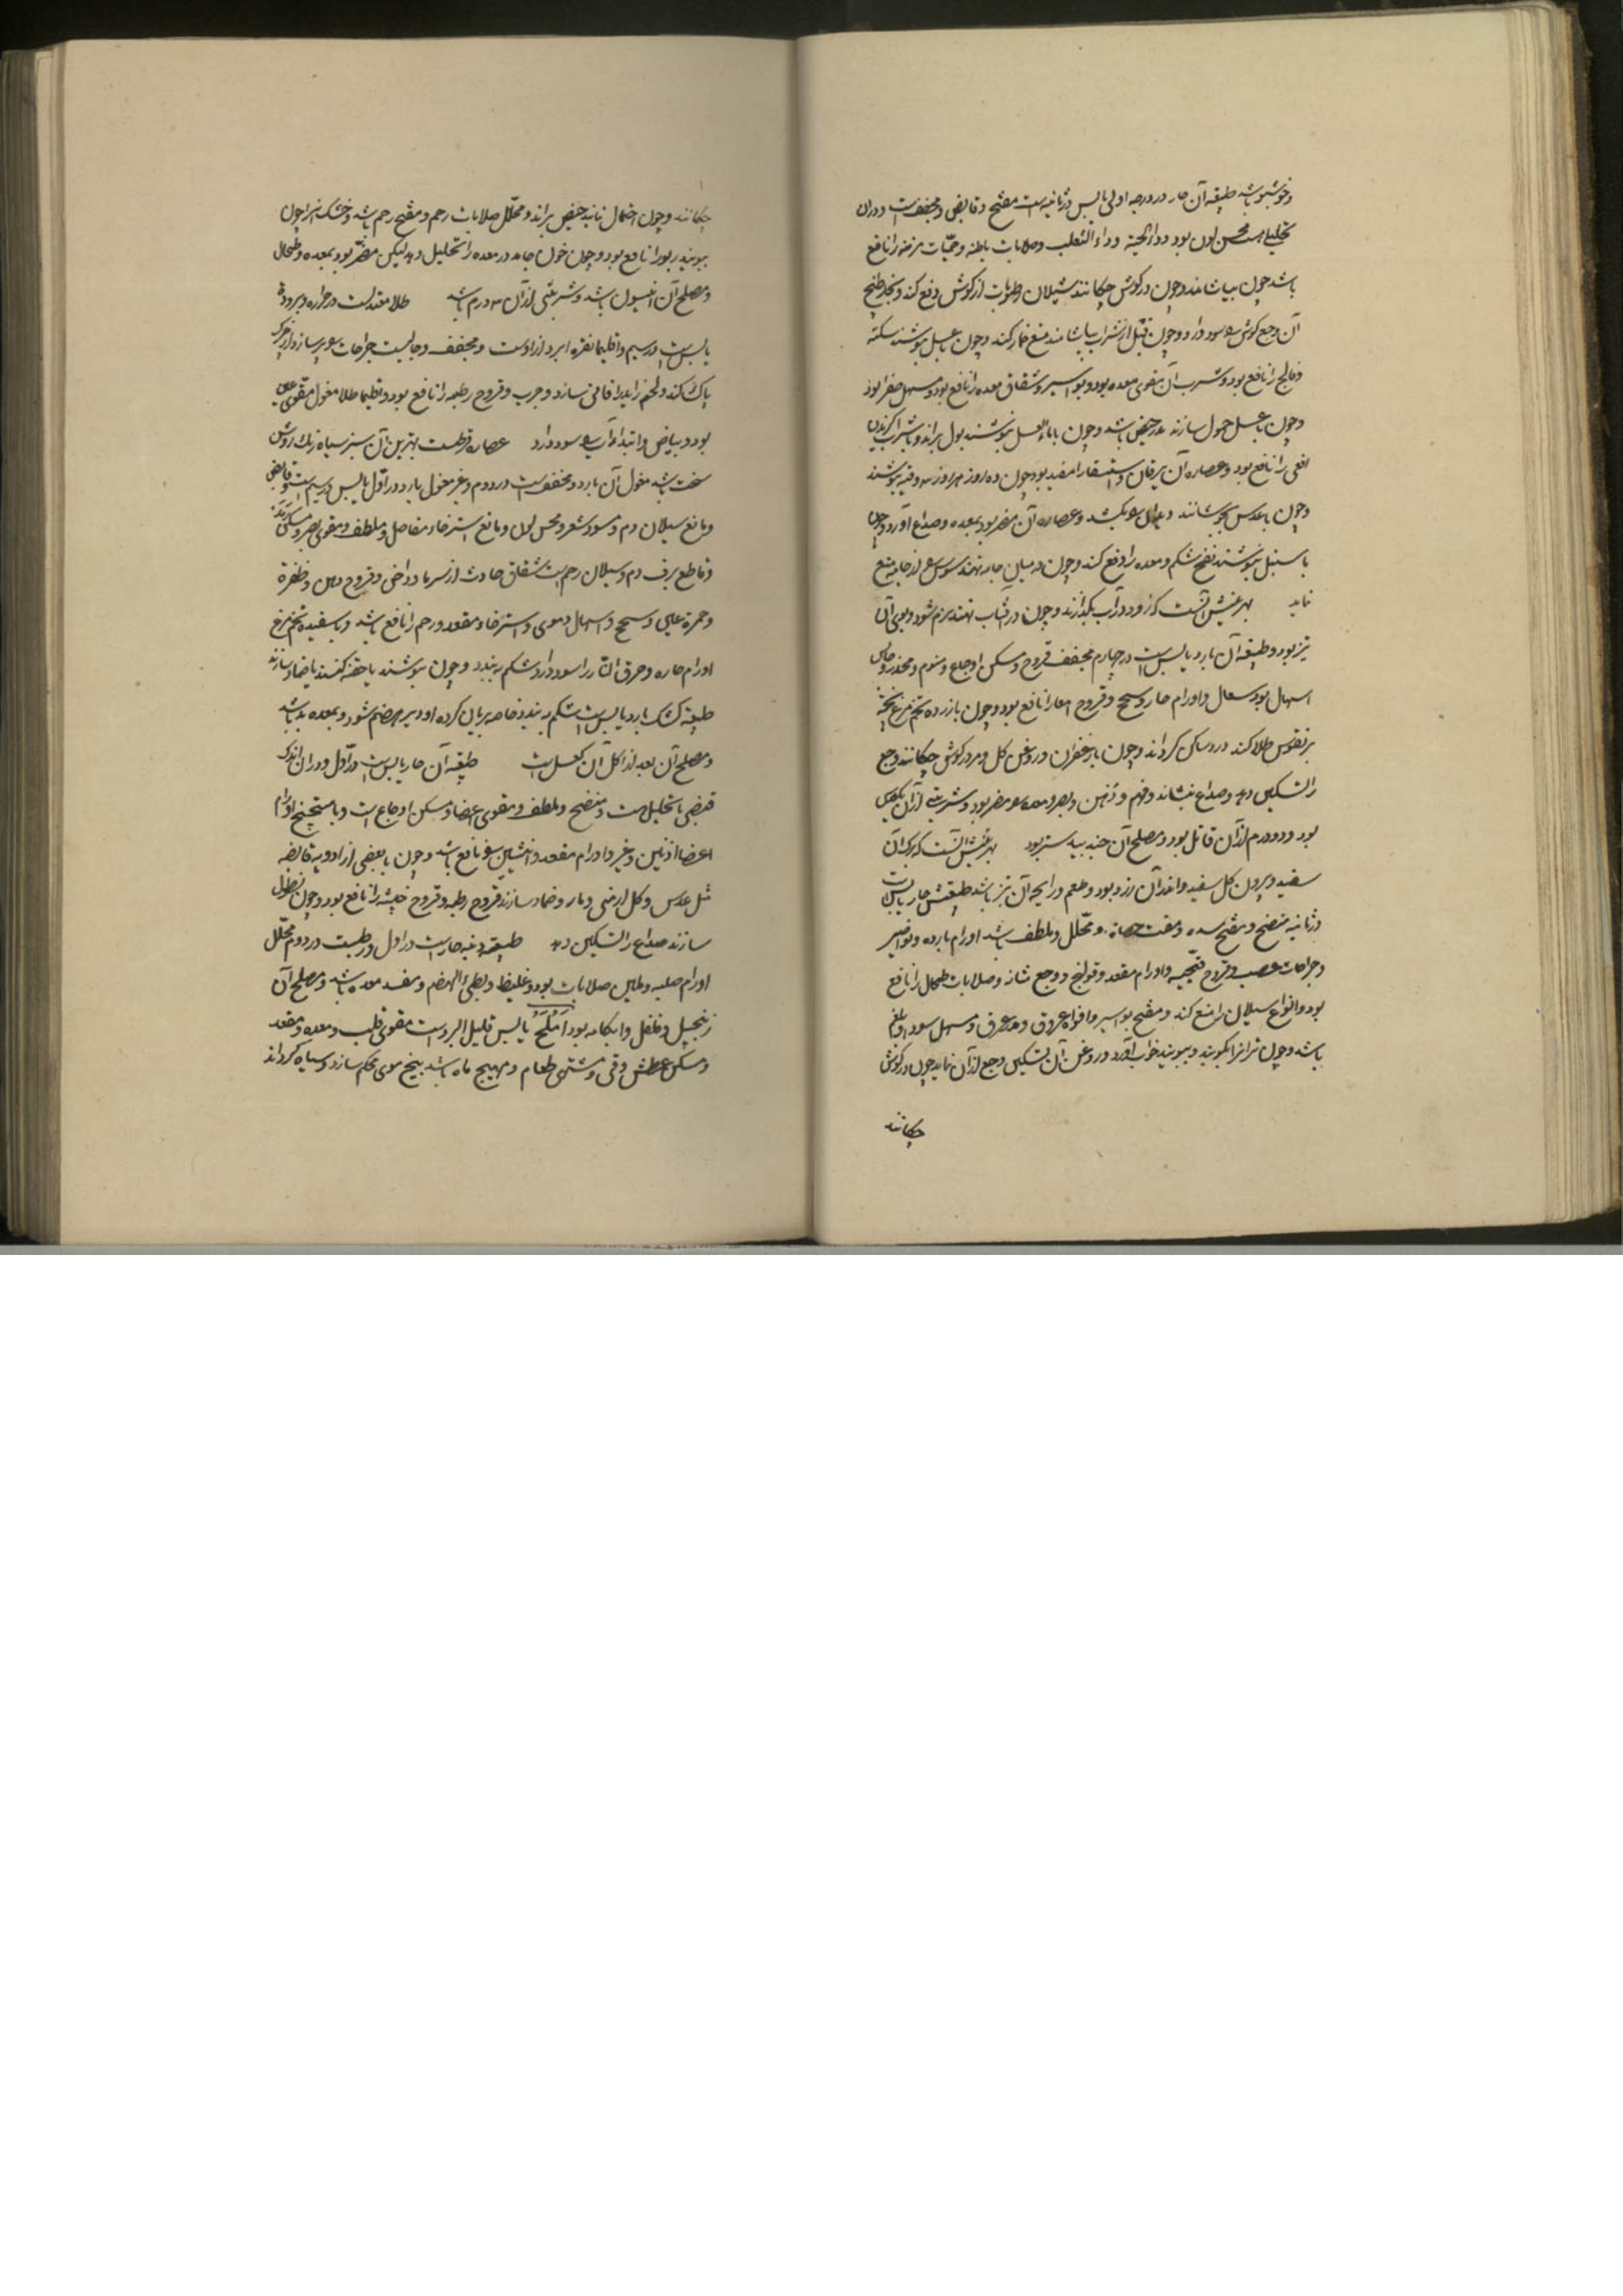 وخوشبو باشد طبیعة آن حار در درجه اولی یابس در ثانیه است مفتح و قابض و مجفف است و در آن
تحلیلی است محسن لون بود و داء الحیه و داء الثعلب و صلابات باطنه و حمیات مزمنه را نافع
باشد چون بیاشامند و چون در گوش چکانند سیلان رطوبات از گوش دفع کند و بخار طبیخ
آن وجع گوش را سود دارد و چون قبل از شراب بیاشامند منع خمار کند و چون با عسل بنوشند سکته
و فالج را نافع بود و شرب آن مقوی معده بود و بواسیر و شقاق معده را نافع بود و مسهل صفرا بود
و چون با عسل حمول سازند مدر حیض باشد و چون با ماء العسل بنوشند بول براند و با شراب گزیدن
افعی را نافع بود و عصاره آن یرقان و استسقا را مفید بود چون ده روز هر روز سه وقیه بنوشند
و چون با عدس بجوشانند و عصاره آن مضر بود بمعده و صداع آورد و چون
با سنبل بنوشند نفخ شکم و معده را دفع کند و چون در میان جامه نهند سوس را از جامه منع
نماید بهترینش آنست که زود در آب بگدازند و چون در آفتاب نهند نرم شود و بوی آن
تیز بود و طبیعة آن بارد یابس است در چهارم مجفف قروح و مسکن اوجاع و منوم و مخدر و حابس
اسهال بود سعال و اورام حار و سحج و قروح امعا را نافع بود و چون با زرده تخم مرغ پخته
بر نقرس طلا کنند درد ساکن گرداند و چون با زعفران و روغن گل و مر در گوش چکانند وجع
را تسکین دهد و صداع بنشاند و فهم و ذهن و بصر و معده را مضر بود و شربتی از آن یک
بود و دو درم از آن قاتل بود و مصلح آن جند بیدستر بود بهترینش آنست که برگ آن
سفید و بیرون گل سفید و اندر آن زرد بود و طعم و رایحه آن تیز باشد طبیعتش حار یابس است
در ثانیه منضج و مفتح سده و مفتت حصاة و محلل و ملطف باشد اورام بارده و نواصیر
و جراحات عصب و قروح و اورام مقعد و قولنج و وجع مثانه و صلابات طحال را نافع
بود و انواع سیلان را منع کند و مفتح بواسیر و افواه عروق و مدر عرق و مسهل سودا و بلغم
باشد و چون تر آنرا بکوبند و ببویند خواب آورد و روغن آن تسکین وجع از آن نماید چون در گوش
چکانند
چکانند و چون احتمال نمایند حیض براند و محلل صلابات رحم و مفتح رحم باشد و خشک آنرا چون
ببویند ربو را نافع بود و چون خون جامد در معده را تحلیل دهد لیکن مضر بود بمعده و طحال
و مصلح آن انیسون باشد و شربتی از آن سه درم باشد طلا معتدلست در حراره و بروده
یابس است در سیم و اقلیما نقره ابرد از اوست و مجفف و جالیست جراحات را پر سازد و از چرک
پاک کند و لحم زاید را فانی سازد و جرب و قروح رطبه را نافع بود و اقلیما طلا مغسول مقوی عین
بود و بیاض و ابتداء آب را سود دارد عصاره قرظست بهترین آن سبز سیاه رنگ روشن
سخت باشد مغسول آن بارد و مجفف است در دوم و غیر مغسول بارد در اول یابس در سیم است و قابض
و مانع سیلان دم و مسود شعر و محسن لون و مانع استرخاء مفاصل و ملطف و مقوی بصر و مسکن رمد
و قاطع نزف دم و سیلان رحم است شقاق حادث از سرما و داخس و قروح دهن و ظفره
و حمره عین و سحج و اسهال دموی و استرخاء مقعد و رحم را نافع باشد و با سفیده تخم مرغ
اورام حاره و حرق النار را سود دارد و شکم ببندد و چون بنوشند یا حقنه کنند یا ضماد سازند
طبیعة کشک بارد یابس است شکم ببندد خاصه بریان کرده او دیر هضم شود و بمعده بد باشد
و مصلح آن بعد از اکل آن کعسل است طبیعة آن حار یابس است در اول و در آن اندک
قبضی با تحلیل است و منضج و ملطف و مقوی اعضا و مسکن اوجاع است و با میپختج اورام
اعضا اذنین و غیر و اورام مقعد و انثیین را نافع باشد و چون با بعضی از ادویه قابضه
مثل عدس و گل ارمنی و ضماد سازند قروح رطبه و قروح خبیثه را نافع بود و چون نطول
سازند صداع را تسکین دهد طبیعة دنبه حار است در اول و رطبست در دوم محلل
اورام صلبه و ملین صلابات بود و غلیظ و بطئ الهضم و مفسد معده باشد و مصلح آن
زنجبیل و فلفل و آبکامه بود اَملَج یابس قلیل البرودست مقوی قلب و معده و مقعد
و مسکن عطش و قی و مشتهی طعام و مهیج باه باشد بیخ موی محکم سازد و سیاه گرداند